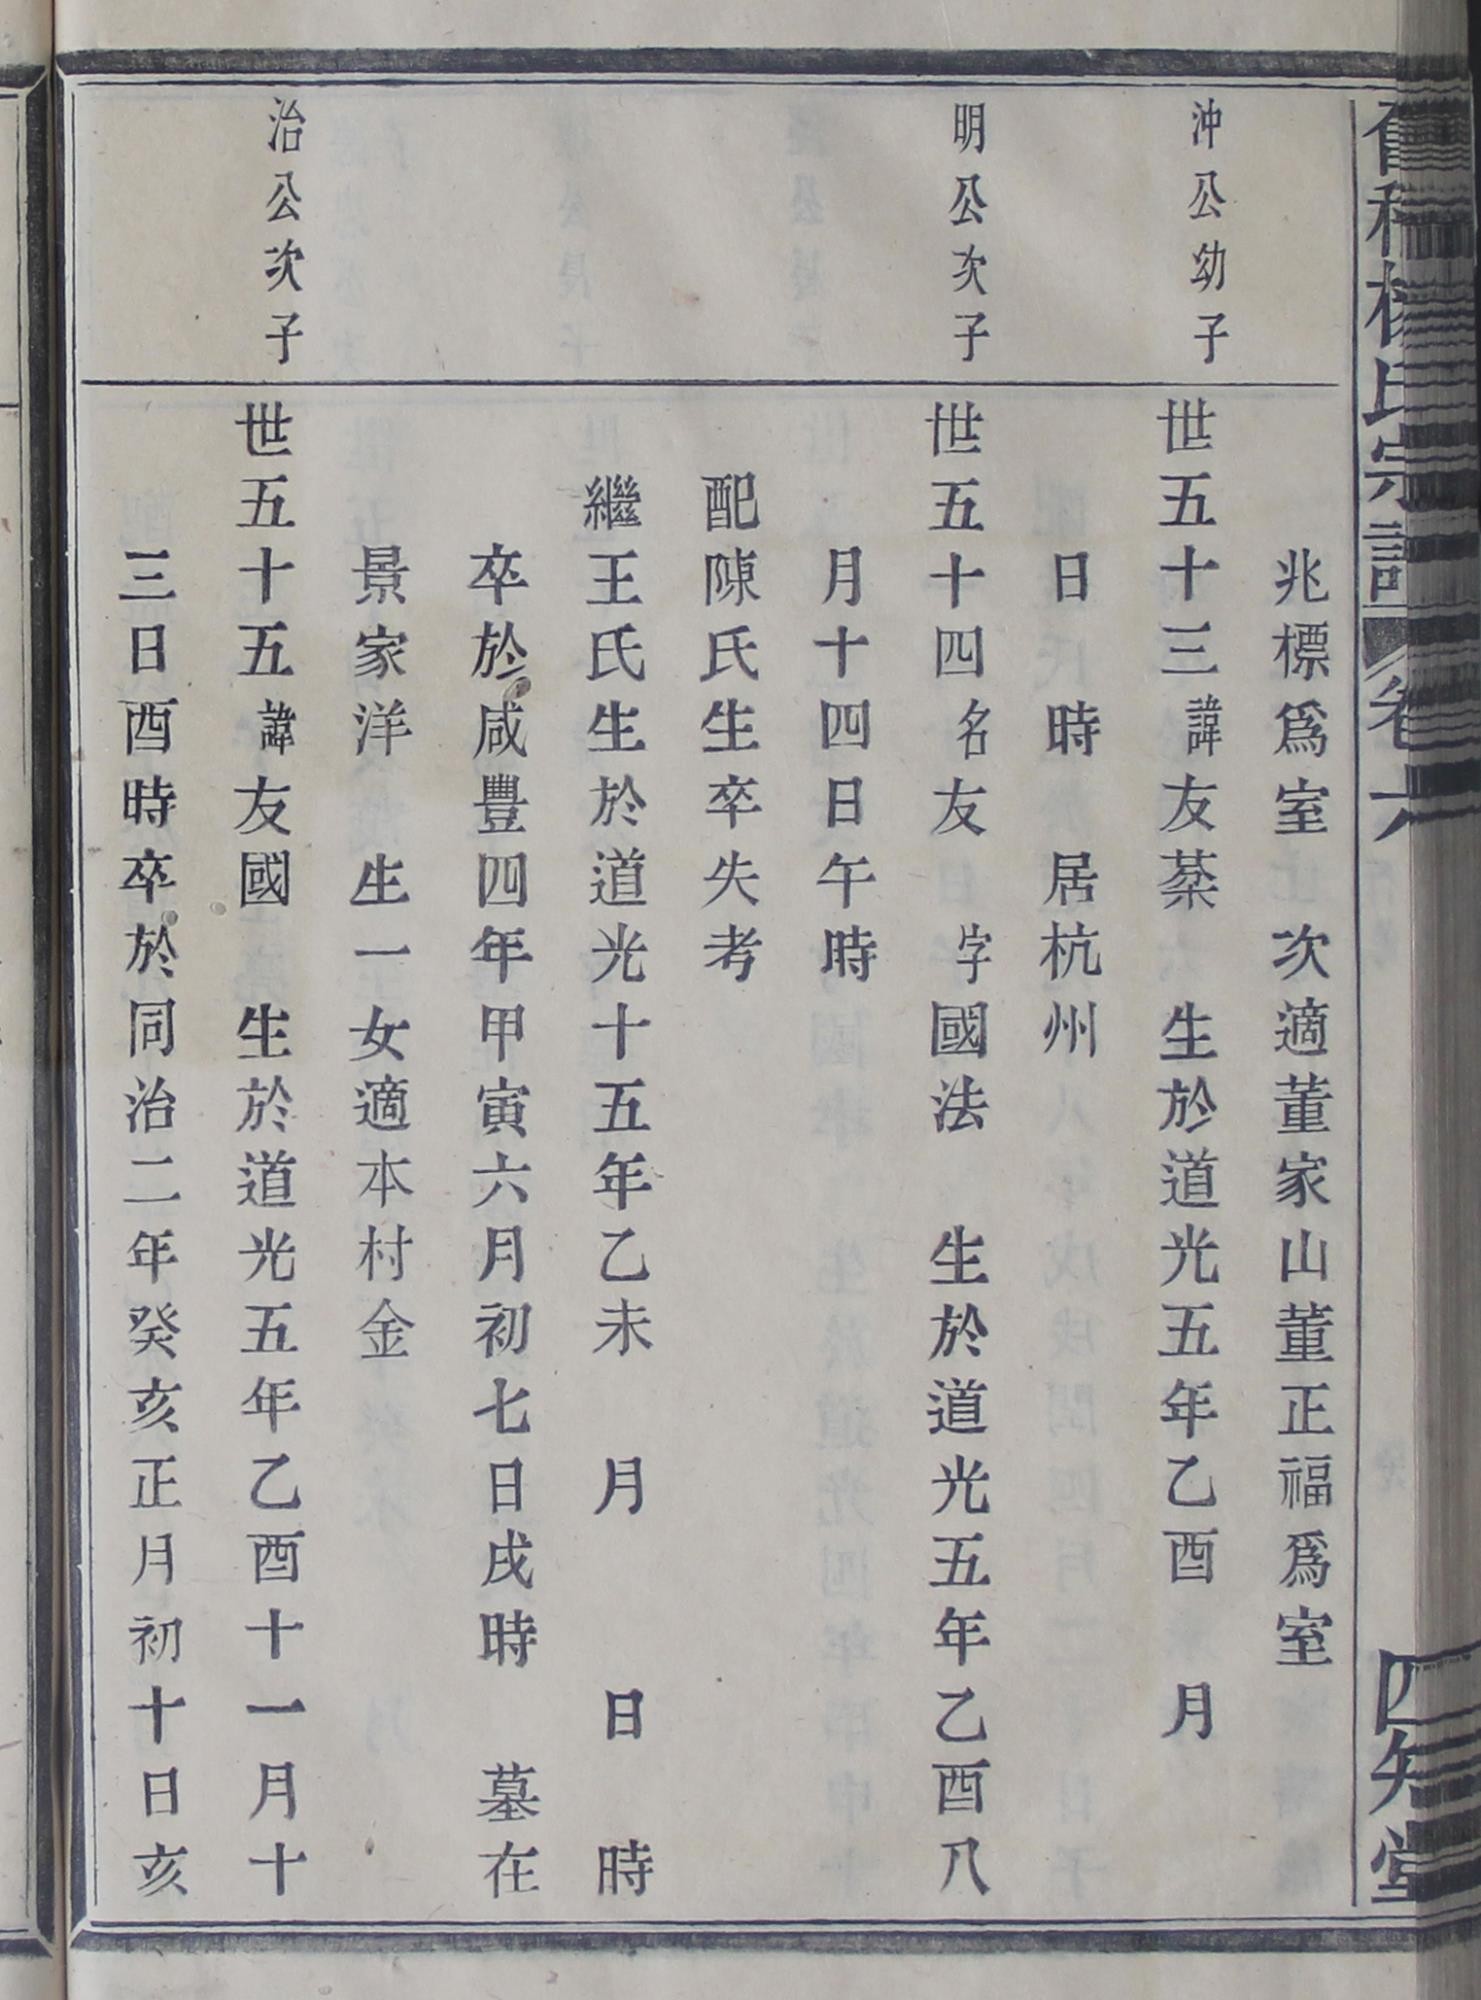 楊氏宗譜 卷六 四知堂
兆標爲室 次適董家山董正福爲室
沖公幼子
世五十三諱友棻 生於道光五年乙酉 月
日 時 居杭州
明公次子
世五十四名友 字國法 生於道光五年乙酉八
月十四日午時
配陳氏生卒失考
繼王氏生於道光十五年乙未 月 日 時
卒於咸豐四年甲寅六月初七日戌時 墓在
景家洋 生一女適本村金
治公次子
世五十五諱友國 生於道光五年乙酉十一月十
三日酉時卒於同治二年癸亥正月初十日亥